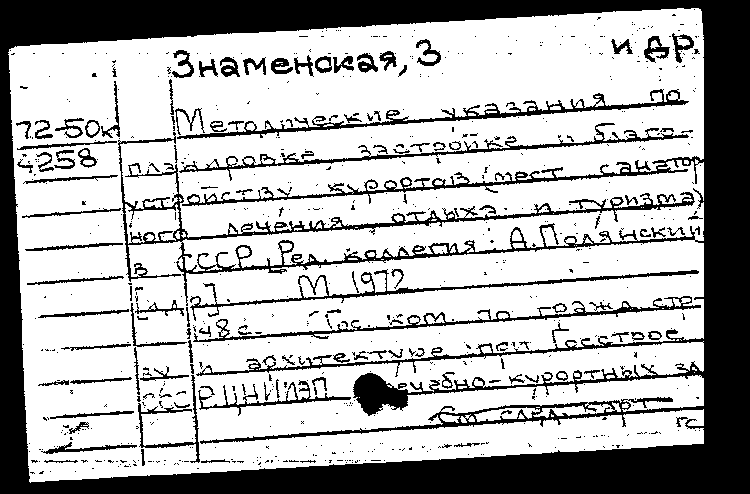 Знаменская, З и др.
72-50к Методические указания по
4258 планировке, застройке и благо-
устройству курортов (мест санатор
ного лечения, отдыха и туризма)
в СССР. [Ред. коллегия: А. Полянский
[и др.]. М., 1972
48 с. (Гос. ком. по гражд. стр-
ву и архитектуре при Госстрое
СССР. ЦНИИЭП лечебно-курортных зд
См. след. карт